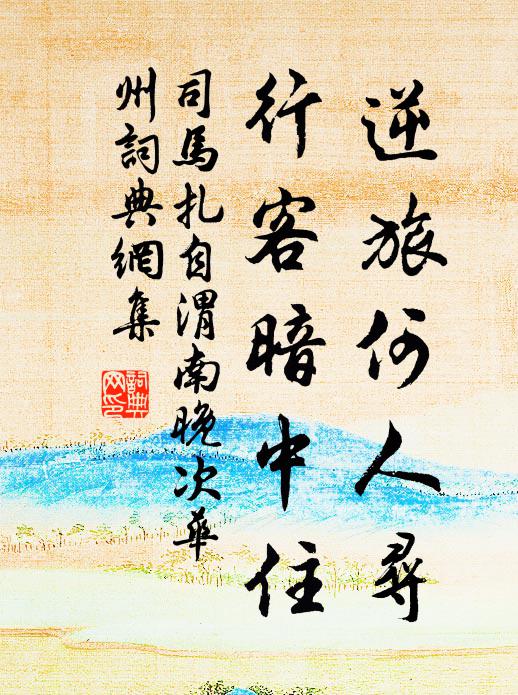 逆旅何人尋
行客暗中住
司馬扎自渭南晚次華
州詞典網集
詞典
网印